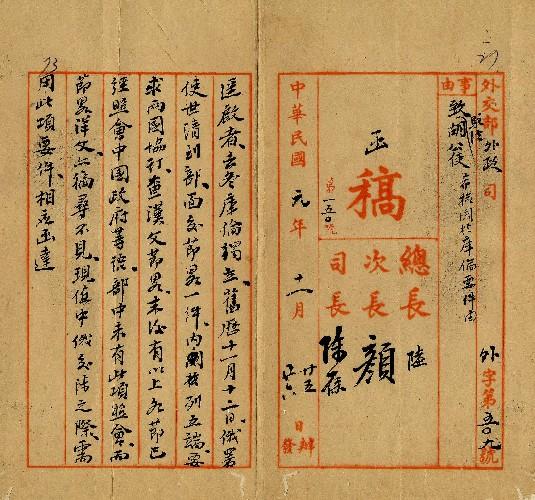 外交部外政司
事由
致胡公使
外字第五〇九號
函
稿
第一五〇號
總長 陸
次長 顏
司長 陳籙
中華民國元年十一月
廿五日辦
廿六日發
逕啟者去冬庫倫獨立舊曆十一月十二日俄署
使世清到部面交節畧一件內開列五端要
求兩國協行查漢文節畧末後有以上各節已
經照會中國政府等語部中未有此項照會而
節畧洋文亦徧尋不見現值中俄交涉之際需
用此項要件相應函達
73